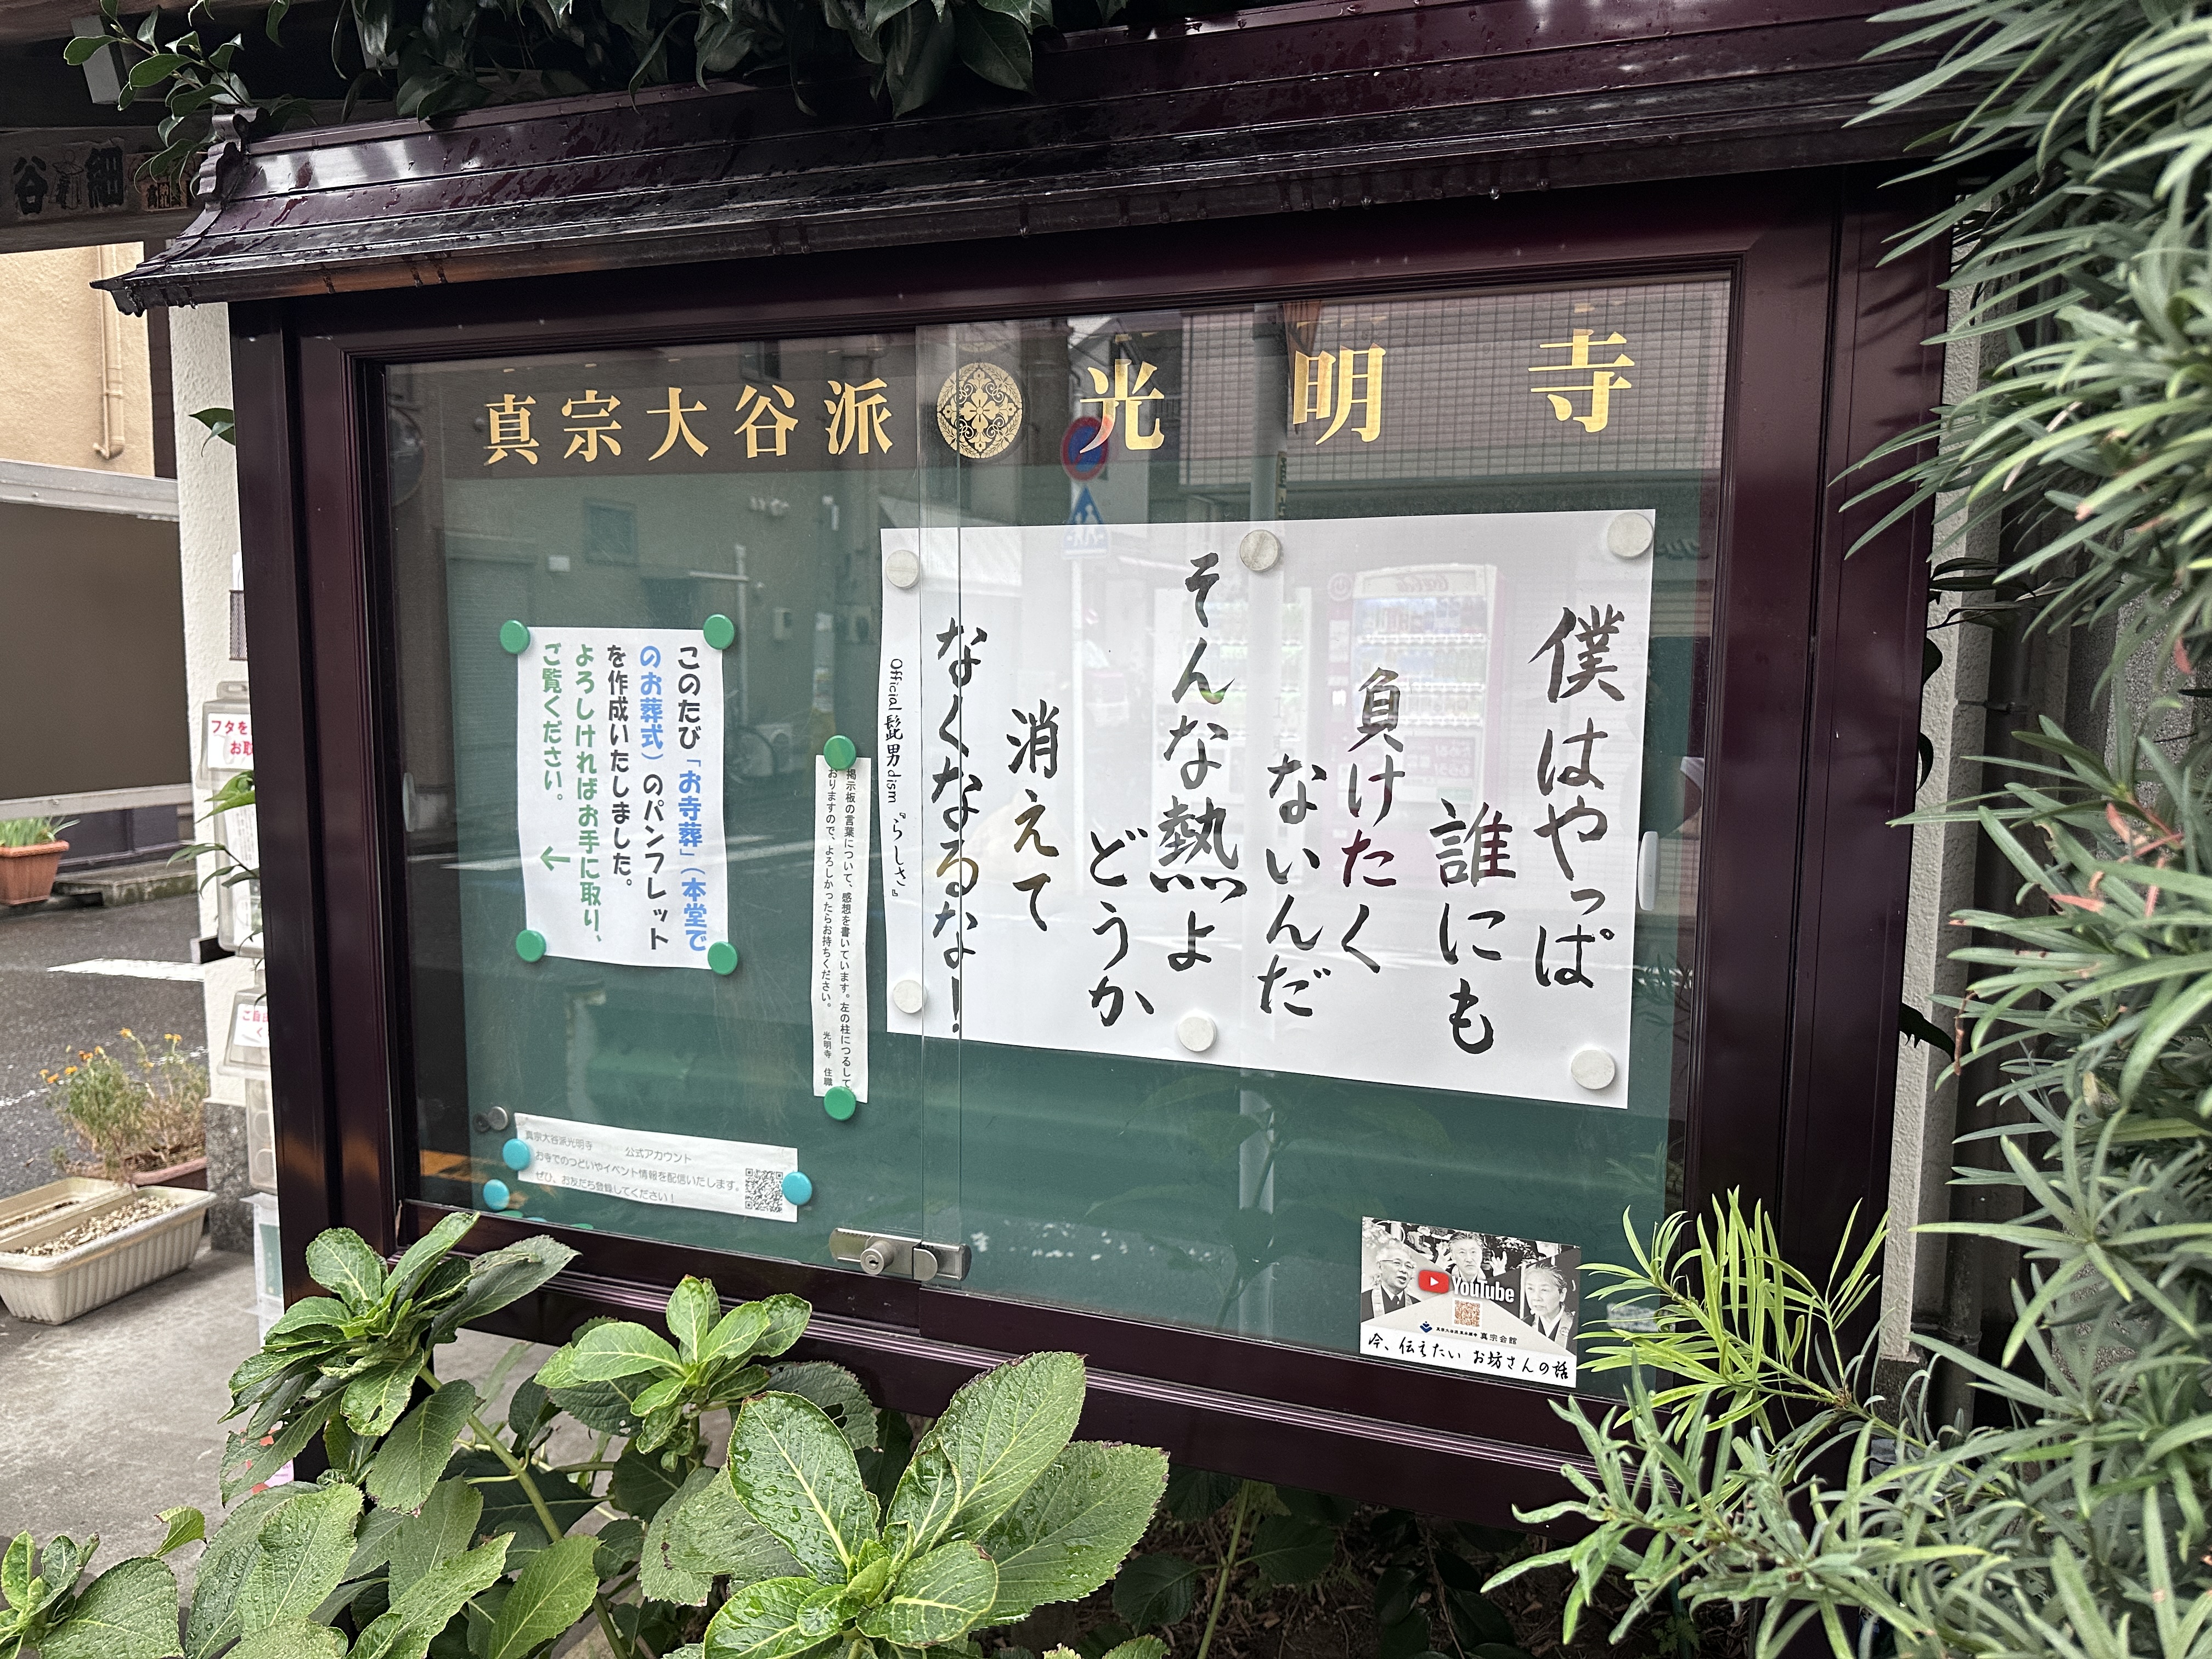 真宗大谷派 光明寺
僕はやっぱ
誰にも
負けたく
ないんだ
そんな熱よ
どうか
消えて
なくなるな!
Official髭男dism 『らしさ』
掲示板の言葉について、感想を書いています。左の柱につるして
おりますので、よろしかったらお持ちください。 光明寺 住職
このたび「お寺葬」(本堂で
のお葬式)のパンフレット
を作成いたしました。
よろしければお手に取り、
ご覧ください。 ←
真宗大谷派光明寺 公式アカウント
お寺でのつどいやイベント情報を配信いたします。
ぜひ、お友だち登録してください!
YouTube
真宗会館
今、伝えたい お坊さんの話
谷 細
フタを
お取
ご自由
く